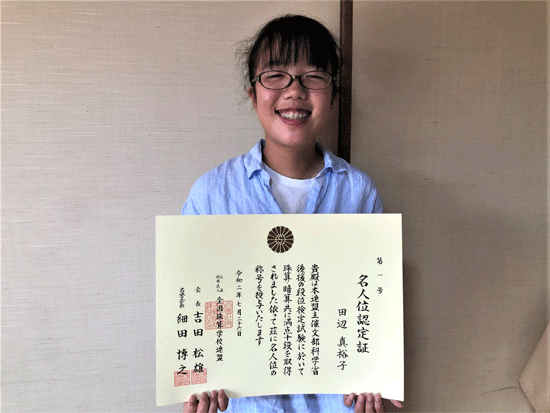 第一号
名人位認定証
田辺 真裕子
貴殿は本連盟主催文部科学省
後援の段位検定試験に於いて
珠算・暗算共に満点十段を取得
されました依って茲に名人位の
称号を授与いたします
令和二年七月二十六日
全国珠算学校連盟
会長 吉田 松雄
名誉会長 細田 博之